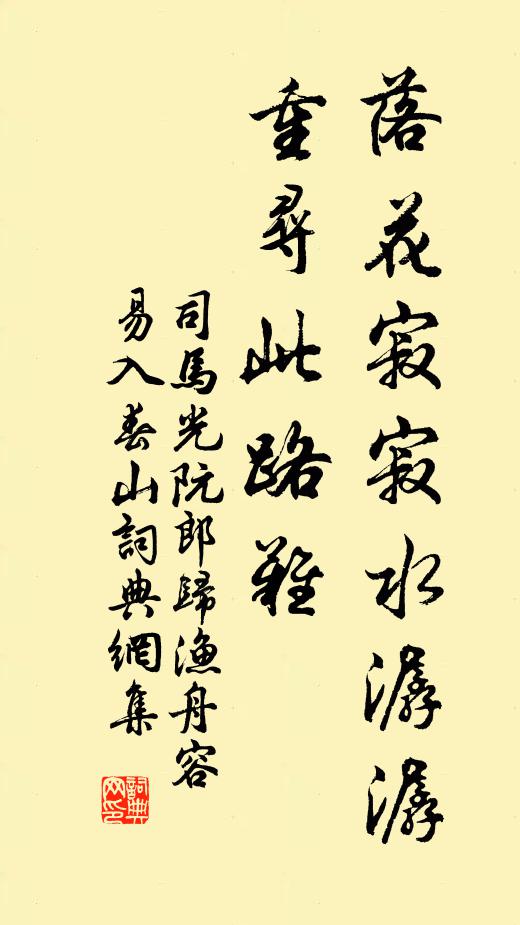 落花寂寂水潺潺
重尋此路難
司馬光阮郎歸漁舟容
易入春山詞典網集
詞典網印